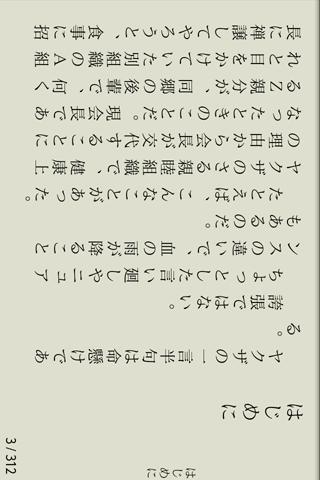 はじめに
はじめに
ヤクザの一言半句は命懸けであ
る。
誇張ではない。
ちょっとした言い廻しやニュア
ンスの違いで、血の雨が降ること
もあるのだ。
たとえば、こんなことがあった。
ヤクザのさる親睦組織で、健康上
の理由から会長が交代することに
なったときのことだ。現会長であ
るＺ親分が、同郷の後輩で、何く
れと目をかけていた別組織のＡ組
長に禅譲してやろうと、食事に招
3 / 312